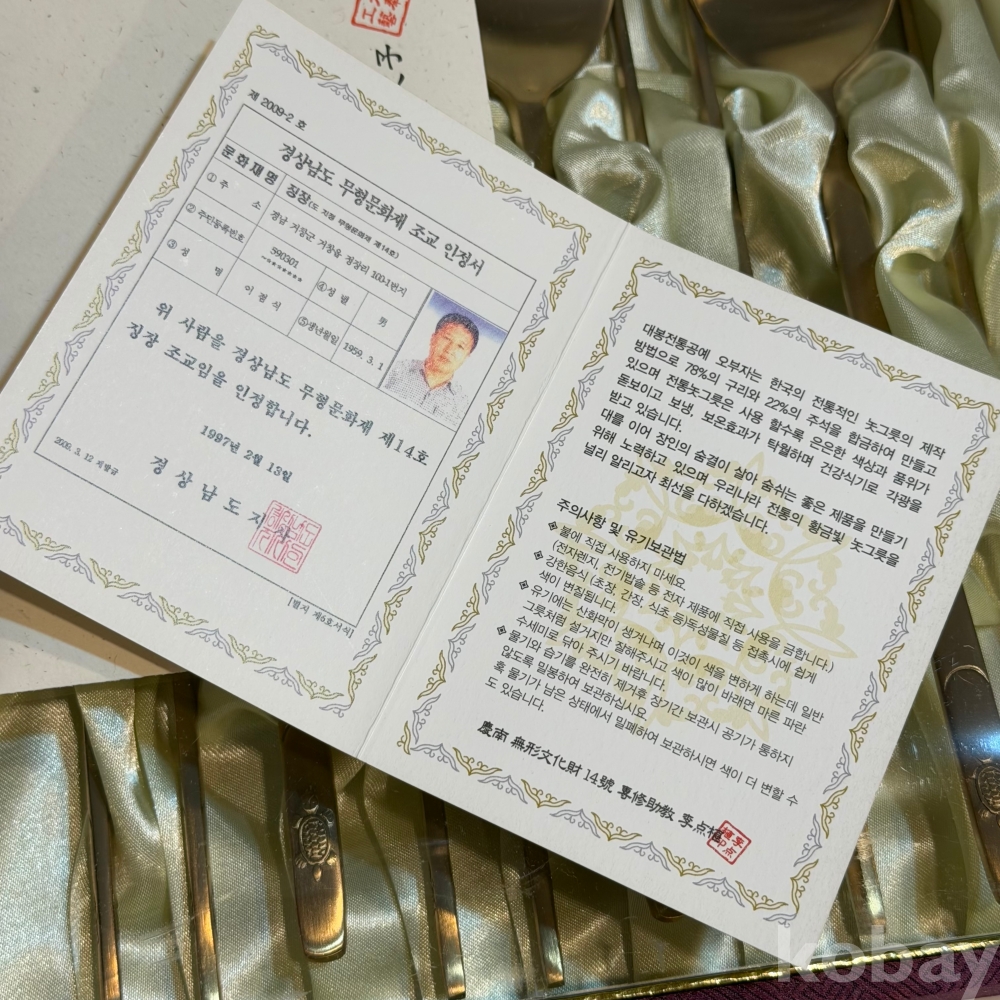 제 2009-2 호
경상남도 무형문화재 조교 인정서
문화재명 징장(도 지정 무형문화재 제14호)
①주 소 경남 거창군 거창읍 정장리 100-1번지
②주민등록번호 590301 -******* ④성별 男
③성 명 이점식 ⑤생년월일 1959. 3. 1
위 사람을 경상남도 무형문화재 제14호
징장 조교임을 인정합니다.
1997년 2월 13일
2009. 3. 12 재발급
경상남도지사
[별지 제6호서식]
대봉전통공예 오부자는 한국의 전통적인 놋그릇의 제작
방법으로 78%의 구리와 22%의 주석을 합금하여 만들고
있으며 전통놋그릇은 사용 할수록 은은한 색상과 품위가
돋보이고 보냉, 보온효과가 탁월하며 건강식기로 각광을
받고 있습니다.
대를 이어 장인의 숨결이 살아 숨쉬는 좋은 제품을 만들기
위해 노력하고 있으며 우리나라 전통의 황금빛 놋그릇을
널리 알리고자 최선을 다하겠습니다.
주의사항 및 유기보관법
❖ 불에 직접 사용하지 마세요
(전자렌지, 전기밥솥 등 전자 제품에 직접 사용을 금합니다.)
❖ 강한음식 (초장, 간장, 식초 등)독성물질 등 접촉시에 쉽게
색이 변질됩니다.
❖ 유기에는 산화막이 생겨나며 이것이 색을 변하게 하는데 일반
그릇처럼 설거지만 잘해주시고 색이 많이 바래면 마른 파란
수세미로 닦아 주시기 바랍니다.
❖ 물기와 습기를 완전히 제거후 장기간 보관시 공기가 통하지
않도록 밀봉하여 보관하십시요
혹 물기가 남은 상태에서 밀폐하여 보관하시면 색이 더 변할 수
도 있습니다.
慶南 無形文化財 14號 專修助敎 李点植
kobay